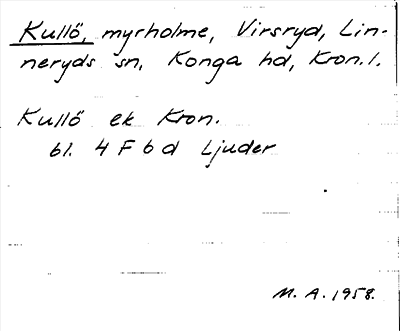 Kullö, myrholme, Virsryd, Lin-
neryds sn, Konga hd, Kron. l.
Kullö ek Kron.
bl. 4 F 6 d Ljuder
M. A. 1958.